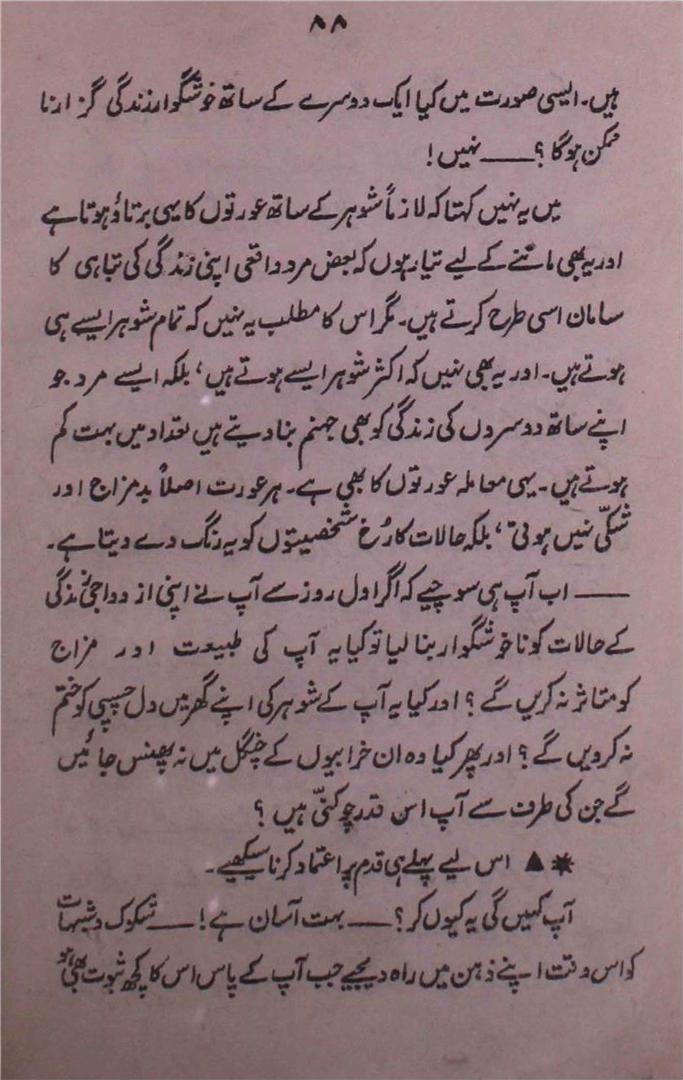 ۸۸
ہیں۔ ایسی صورت میں کیا ایک دوسرے کے ساتھ خوشگوار زندگی گزارنا
ممکن ہوگا؟ ــــ نہیں!
میں یہ نہیں کہتا کہ لازماً شوہر کے ساتھ عورتوں کا یہی برتاؤ ہوتا ہے
اور یہ بھی ماننے کے لیے تیار ہوں کہ بعض مرد واقعی اپنی زندگی کی تباہی کا
سامان اسی طرح کرتے ہیں۔ مگر اس کا مطلب یہ نہیں کہ تمام شوہر ایسے ہی
ہوتے ہیں۔ اور یہ بھی نہیں کہ اکثر شوہر ایسے ہوتے ہیں، بلکہ ایسے مرد جو
اپنے ساتھ دوسروں کی زندگی کو بھی جہنم بنا دیتے ہیں تعداد میں بہت کم
ہوتے ہیں۔ یہی معاملہ عورتوں کا بھی ہے۔ ہر عورت اصلاً بدمزاج اور
شکّی نہیں ہوتی، بلکہ حالات کا رُخ شخصیتوں کو یہ رنگ دے دیتا ہے۔
ــــ اب آپ ہی سوچیے کہ اگر اول روز سے آپ نے اپنی ازدواجی زندگی
کے حالات کو ناخوشگوار بنا لیا تو کیا یہ آپ کی طبیعت اور مزاج
کو متاثر نہ کریں گے؟ اور کیا یہ آپ کے شوہر کی اپنے گھر میں دل چسپی کو ختم
نہ کردیں گے؟ اور پھر کیا وہ ان خرابیوں کے چنگل میں نہ پھنس جائیں
گے جن کی طرف سے آپ اس قدر چوکنّی ہیں؟
✷▲ اس لیے پہلے ہی قدم پر اعتماد کرنا سیکھیے۔
آپ کہیں گی یہ کیوں کر؟ ــــ بہت آسان ہے! ــــ شکوک و شبہات
کو اس وقت اپنے ذہن میں راہ دیجیے جب آپ کے پاس اس کا کچھ ثبوت بھی ہو